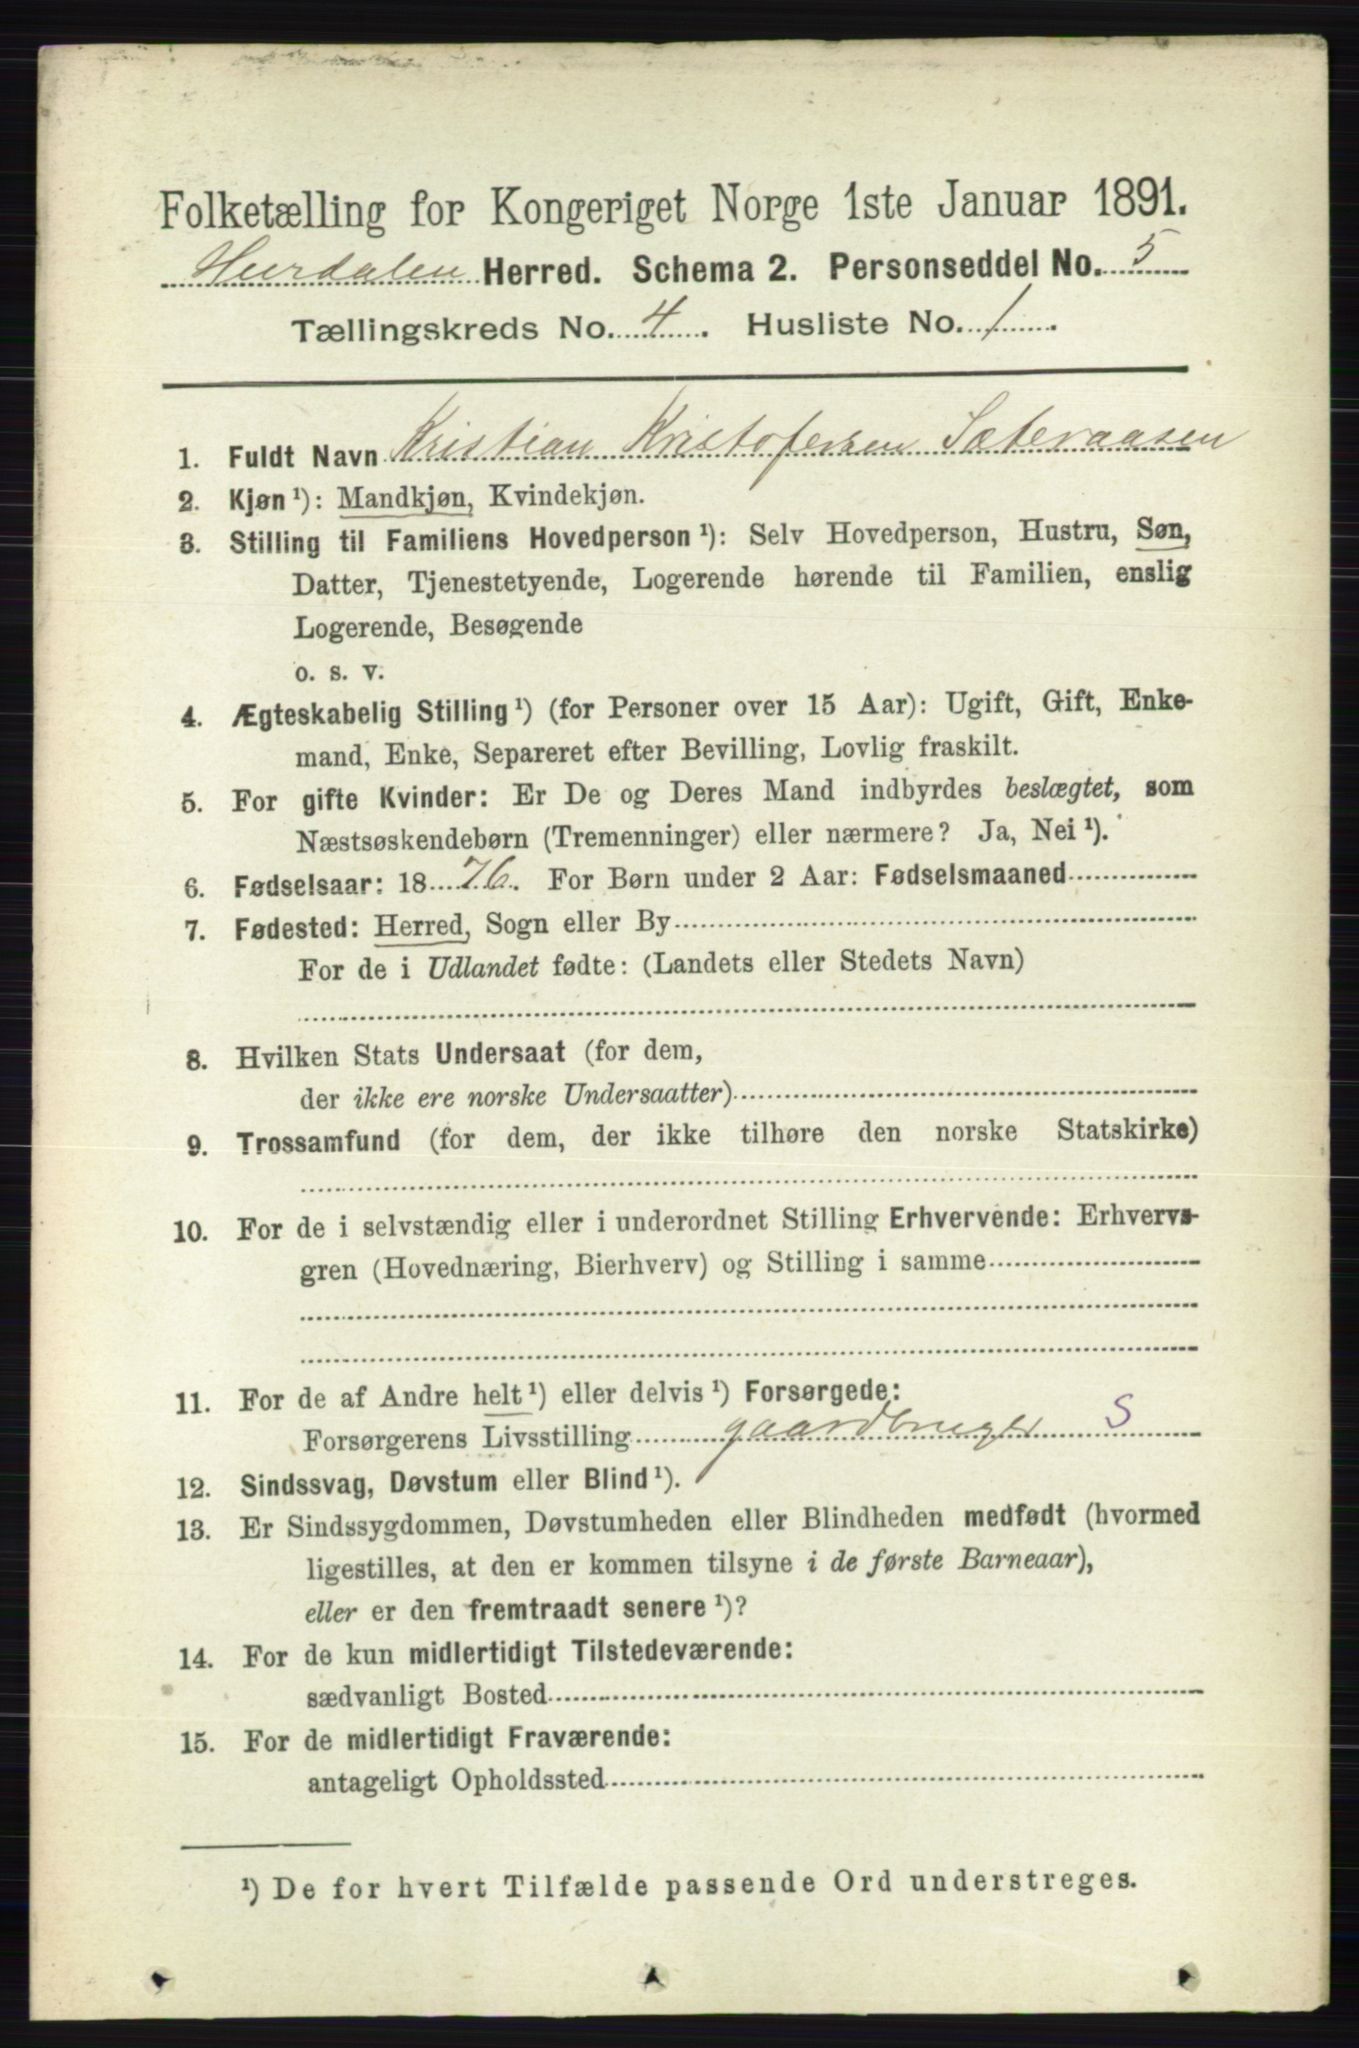 Folketælling for Kongeriget Norge 1ste Januar 1891.
Hurdalen Herred. Schema 2. Personseddel No. 5
Tællingskreds No. 4. Husliste No. 1.
1. Fuldt Navn Kristian Kristofersen Sæteraasen
2. Kjøn ¹): Mandkjøn, Kvindekjøn.
3. Stilling til Familiens Hovedperson ¹): Selv Hovedperson, Hustru, Søn,
Datter, Tjenestetyende, Logerende hørende til Familien, enslig
Logerende, Besøgende
o. s. v.
4. Ægteskabelig Stilling ¹) (for Personer over 15 Aar): Ugift, Gift, Enke-
mand, Enke, Separeret efter Bevilling, Lovlig fraskilt.
5. For gifte Kvinder: Er De og Deres Mand indbyrdes beslægtet, som
Næstsøskendebørn (Tremenninger) eller nærmere? Ja, Nei ¹).
6. Fødselsaar: 1876. For Børn under 2 Aar: Fødselsmaaned
7. Fødested: Herred, Sogn eller By
For de i Udlandet fødte: (Landets eller Stedets Navn)
8. Hvilken Stats Undersaat (for dem,
der ikke ere norske Undersaatter)
9. Trossamfund (for dem, der ikke tilhøre den norske Statskirke)
10. For de i selvstændig eller i underordnet Stilling Erhvervende: Erhvervs-
gren (Hovednæring, Bierhverv) og Stilling i samme
11. For de af Andre helt ¹) eller delvis ¹) Forsørgede:
Forsørgerens Livsstilling gaardbruger S
12. Sindssvag, Døvstum eller Blind ¹).
13. Er Sindssygdommen, Døvstumheden eller Blindheden medfødt (hvormed
ligestilles, at den er kommen tilsyne i de første Barneaar),
eller er den fremtraadt senere ¹)?
14. For de kun midlertidigt Tilstedeværende:
sædvanligt Bosted
15. For de midlertidigt Fraværende:
antageligt Opholdssted
¹) De for hvert Tilfælde passende Ord understreges.